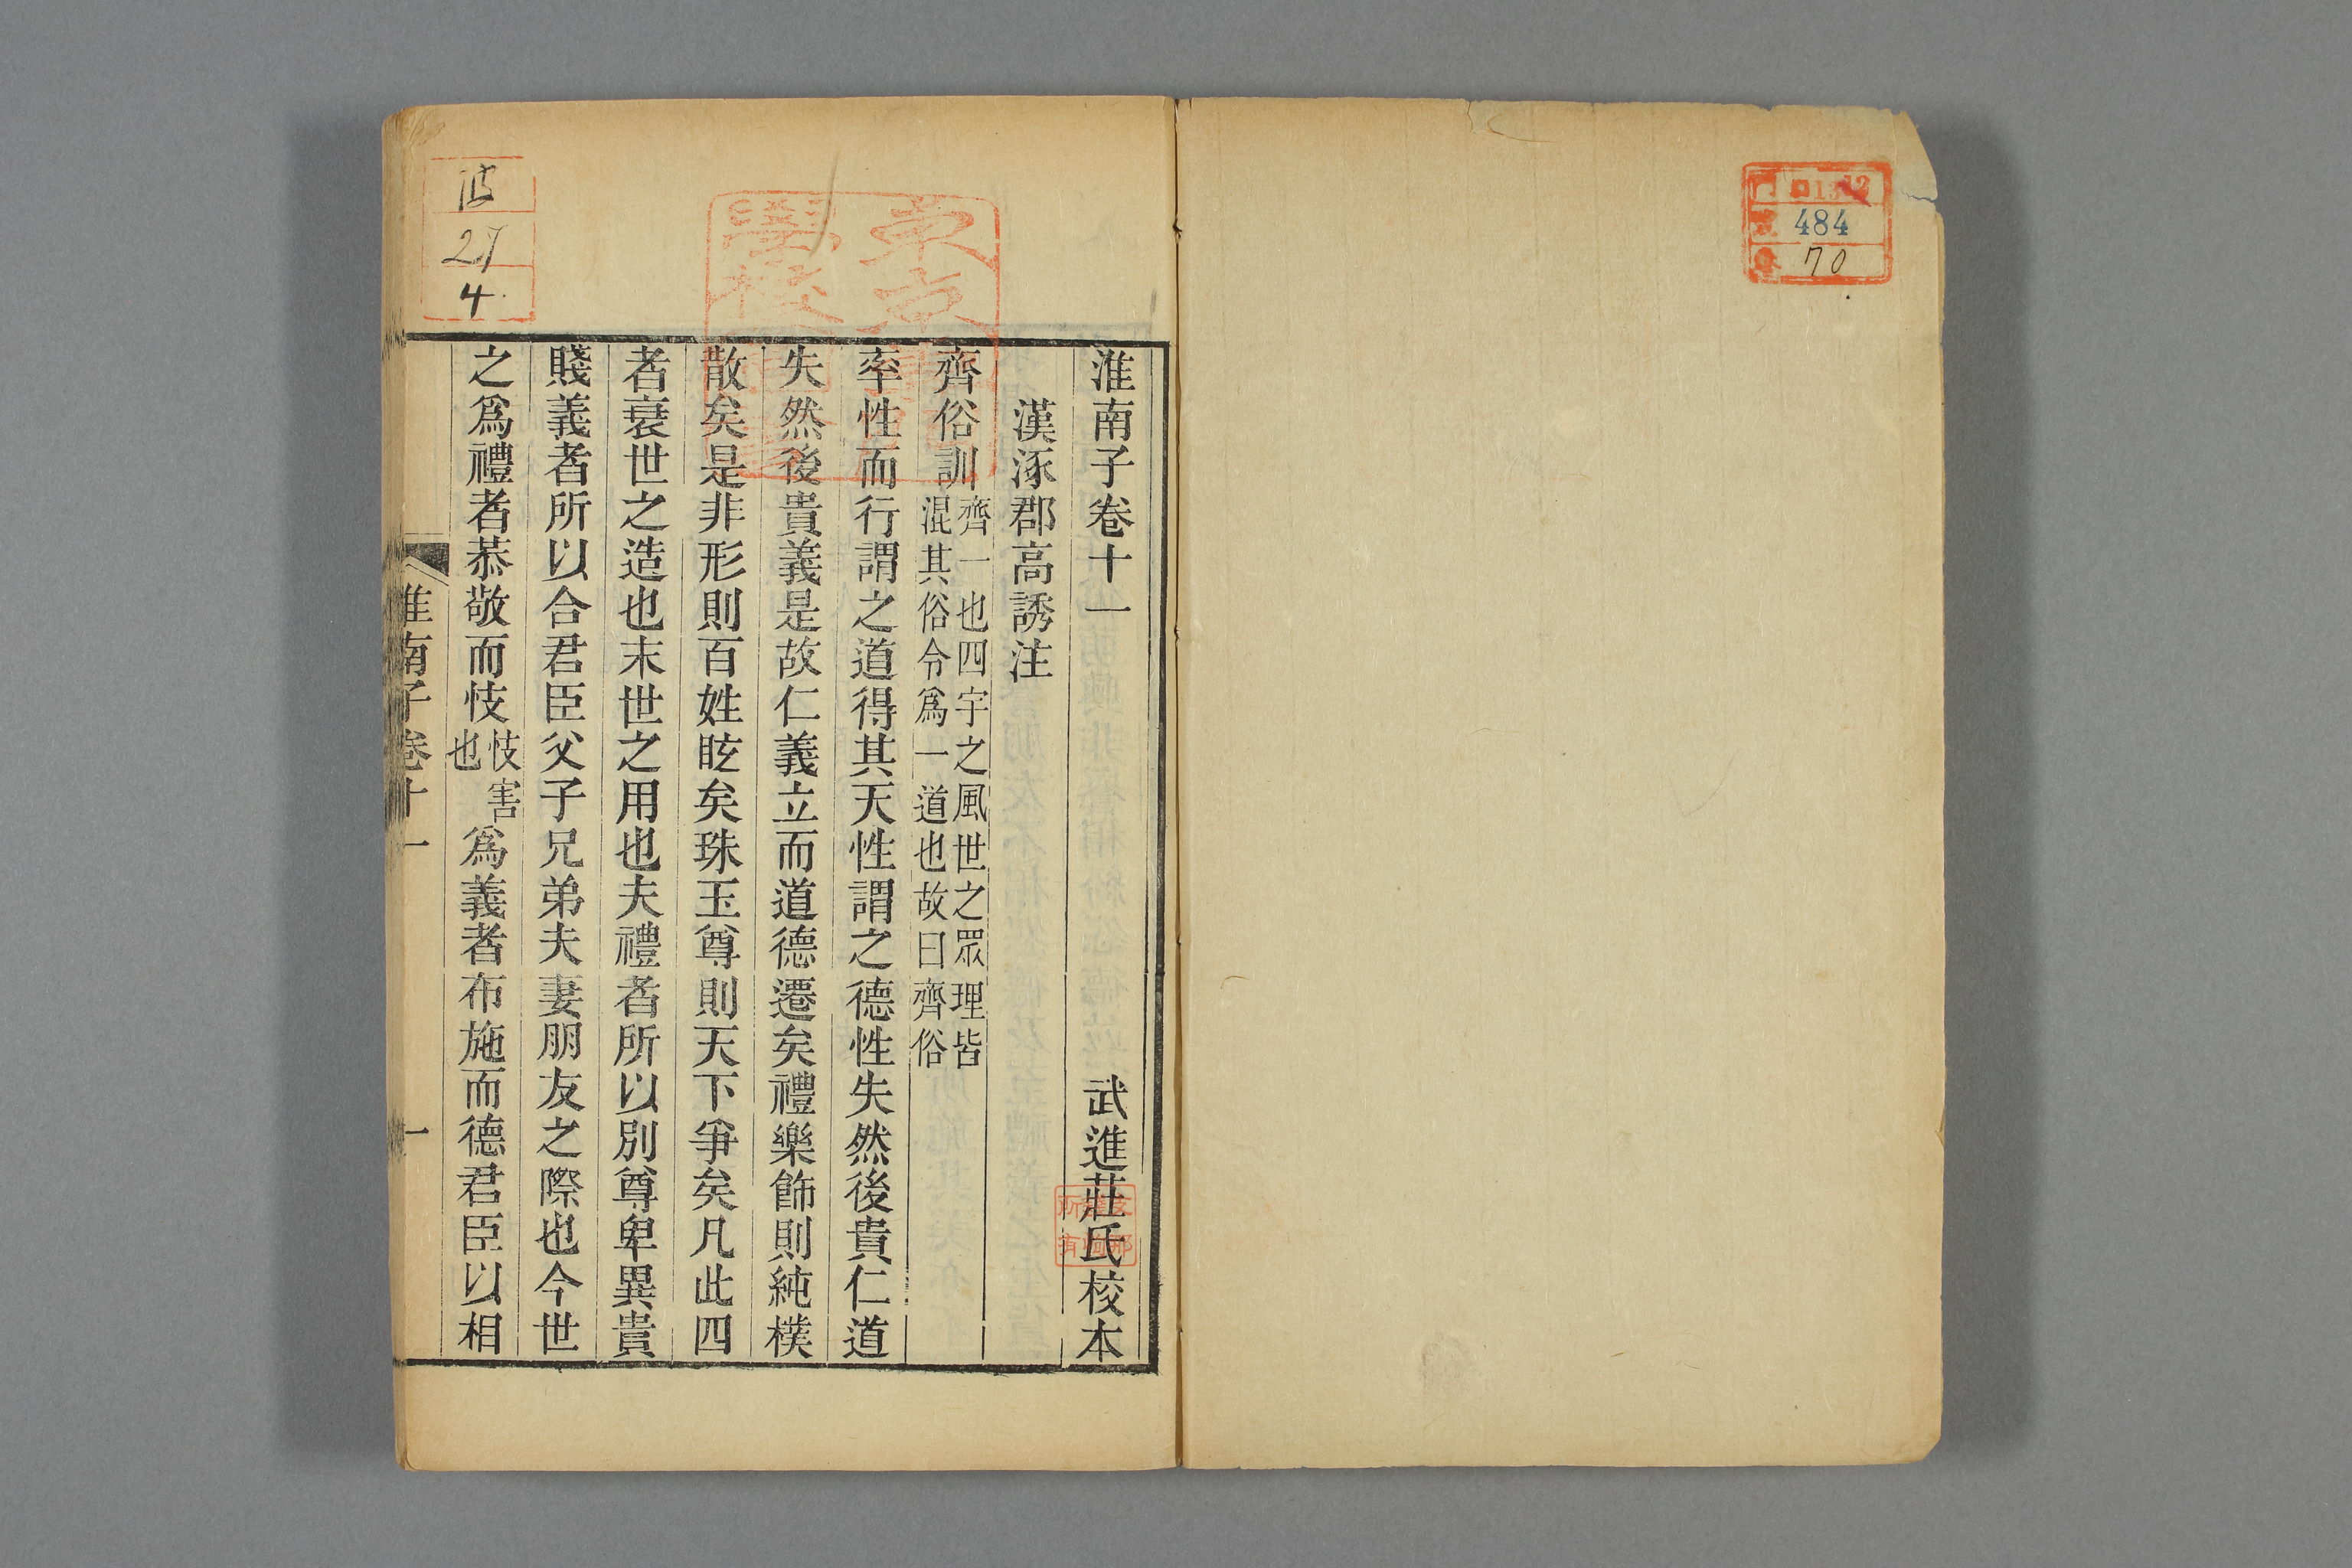 口1342
484
70
淮南子卷十一　武進莊氏校本
漢涿郡高誘注
齊俗訓齊一也四宇之風世之眾理皆混其俗令爲一道也故曰齊俗
率性而行謂之道得其天性謂之德性失然後貴仁道
失然後貴義是故仁義立而道德遷矣禮樂飾則純樸
散矣是非形則百姓眩矣珠玉尊則天下爭矣凡此四
者衰世之造也末世之用也夫禮者所以別尊卑異貴
賤義者所以合君臣父子兄弟夫妻朋友之際也今世
之爲禮者恭敬而忮忮害也爲義者布施而德君臣以相
淮南子卷十一　一
27
4